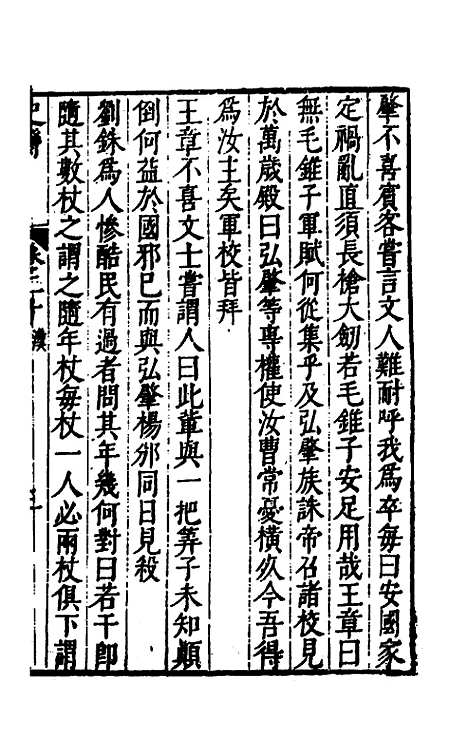 肇不喜賓客嘗言文人難耐呼我為卒每曰安國家
定禍亂直須長槍大劒若毛錐子安足用哉王章曰
無毛錐子軍賦何從集乎及弘肇族誅帝召諸校見
於萬歲殿曰弘肇等專權使汝曹常憂橫夊今吾得
為汝主矣軍校皆拜
王章不喜文士嘗謂人曰此輩與一把筭子未知顛
倒何益於國邪巳而與弘肇楊邠同日見殺
劉銖為人慘酷民有過者問其年幾何對曰若干卽
隨其數杖之謂之隨年杖每杖一人必兩杖俱下謂
卷三十